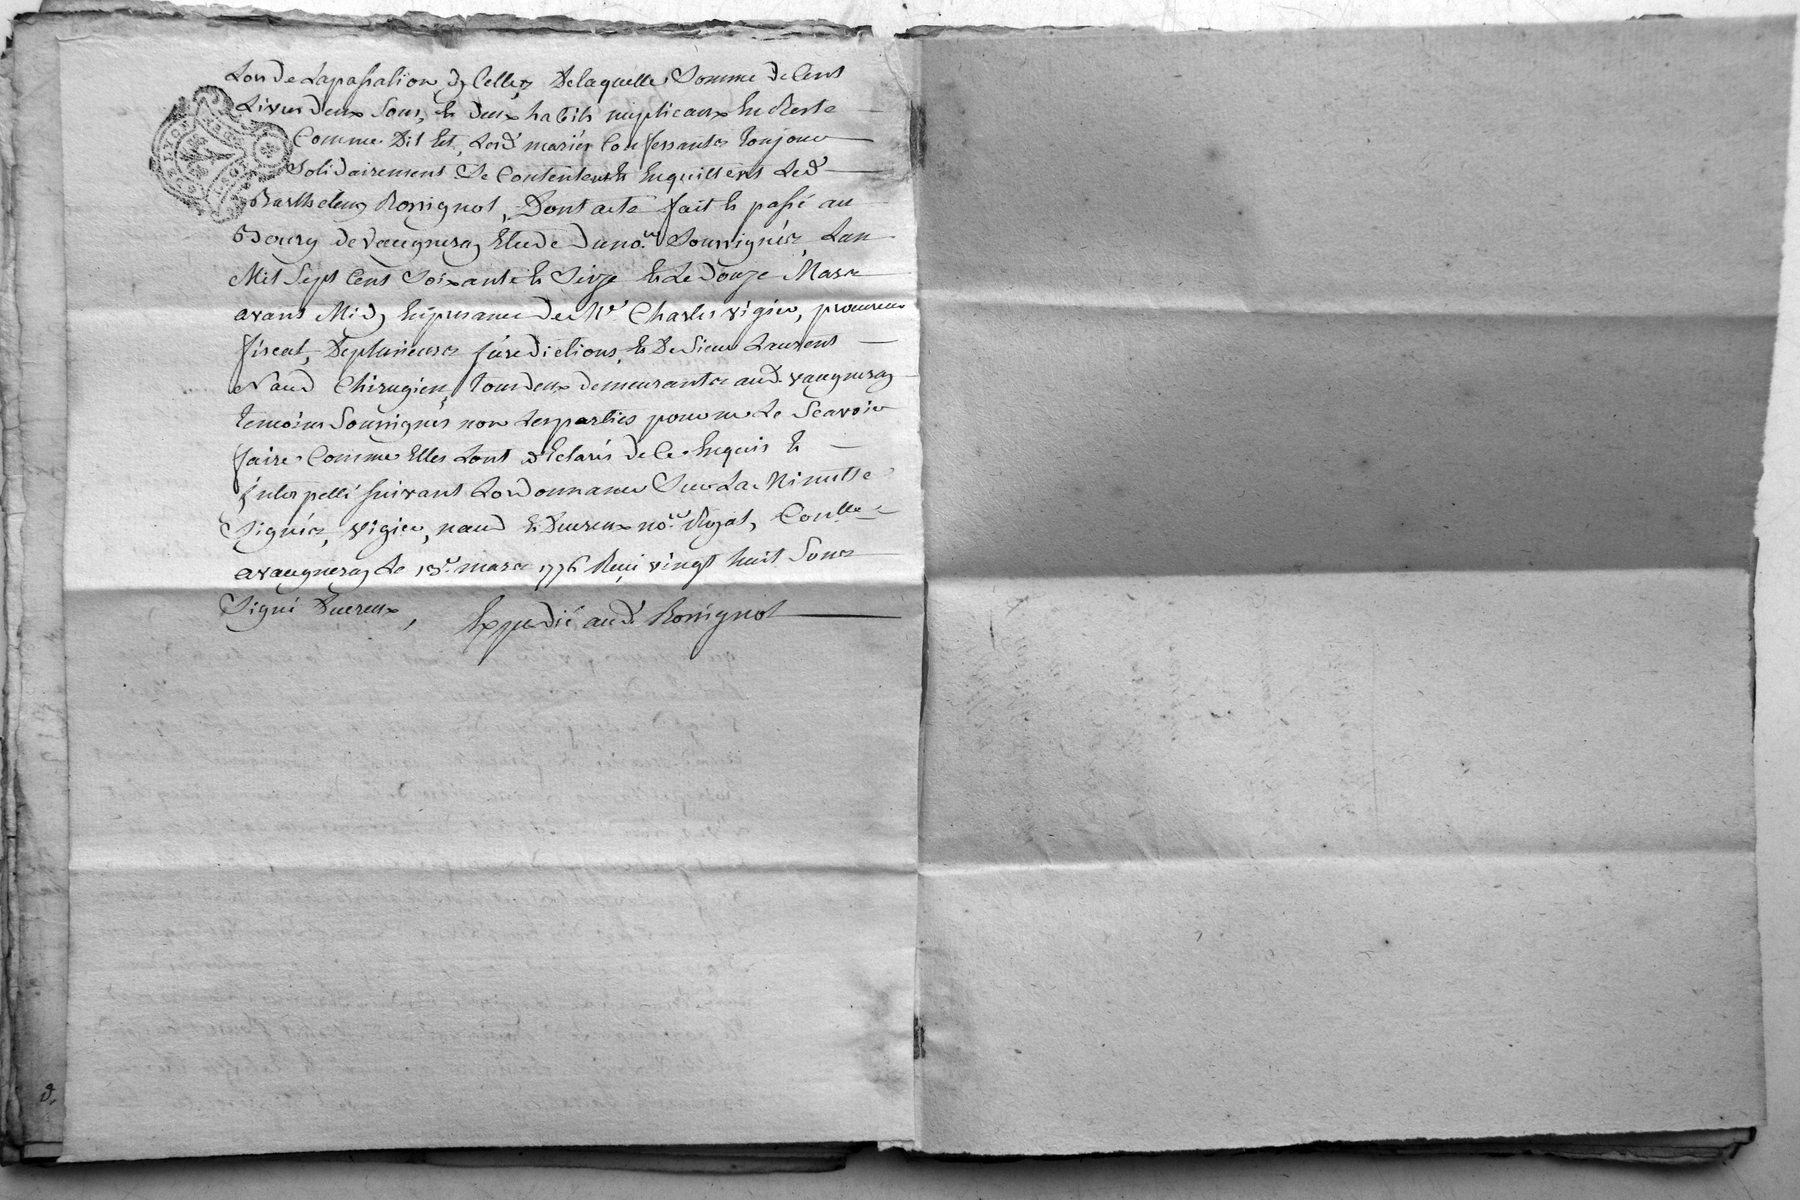 Lors de Lapassation dycelles, De laquelle Somme de Cent
Livres deux Sous, et deux habits nuptieaux En Reste
Comme Dit Est, Lesd. mariés Confessantes Toujours
Solidairement Se Contentent et Enquittent Led.
Barthelemy Rossignol, Dont acte fait et passé au
Bourg de Vaugneray Etude du no.re Soussignés, Lan
Mil Sept Cent Soixante et Seize et Le Douze Mars
avant Midy En presance de Me Charles Vigier, procureur
fiscal, De plusieurs jurédictions, et De Sieur Laurent
Naud Chirugien, tous deux demeurants aud. Vaugneray
temoins Soussignés non Les parties pour ne Le Scavoir
faire Comme Elles Lont Déclarés de Ce Enquis et
jnterpellé suivant Lordonnance Sur La Minutte
Signés, Vigier, naud et Dureux no.re Royal, Con.lle
a Vaugneray Le 13.e mars 1776 Reçu vingt huit Sous
Signé Dureux, Expedié aud. Rossignol